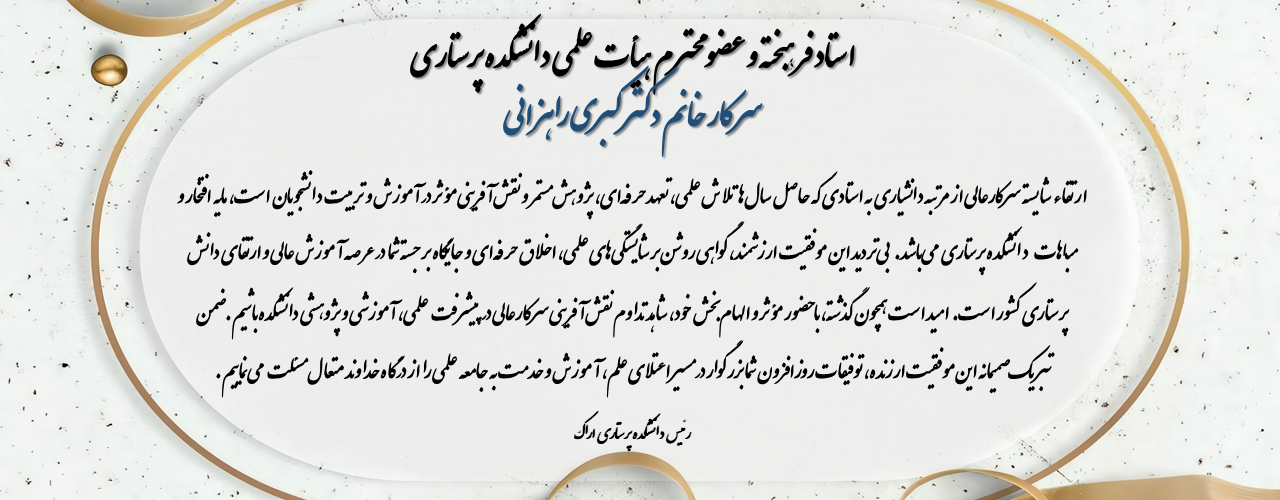 استاد فرهیخته و عضو محترم هیأت علمی دانشکده پرستاری
سرکار خانم دکتر کبری راهزانی
ارتقاء شایسته سرکارعالی از مرتبه دانشیاری به استادی که حاصل سال‌ها تلاش علمی، تعهد حرفه‌ای، پژوهش مستمر و نقش‌آفرینی مؤثر در آموزش و تربیت دانشجویان است، مایه افتخار و
مباهات دانشکده پرستاری می‌باشد. بی‌تردید این موفقیت ارزشمند، گواهی روشن بر شایستگی‌های علمی، اخلاق حرفه‌ای و جایگاه برجسته شما در عرصه آموزش عالی و ارتقای دانش
پرستاری کشور است. امید است همچون گذشته، با حضور مؤثر و الهام‌بخش خود، شاهد تداوم نقش‌آفرینی سرکارعالی در پیشرفت علمی، آموزشی و پژوهشی دانشکده باشیم. ضمن
تبریک صمیمانه این موفقیت ارزنده، توفیقات روزافزون شما بزرگوار در مسیر اعتلای علم، آموزش و خدمت به جامعه علمی را از درگاه خداوند متعال مسئلت می‌نماییم.
رئیس دانشکده پرستاری اراک